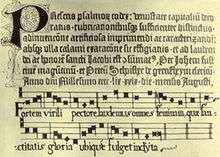 Presens psalmor codex: venustate capitaliū deco
ratus. rubricationibusqʒ sufficienter distinctus.
adinuentione artificiosa imprimendi ac caracterizandi:
absqʒ ulla calami exaratione sic effigiatus. et ad laudem
dei ac honorē sancti Jacobi est ɔsūmatꝰ. Per Johannem fust
ciuem magūtinū. et Petrū Schoiffher de gernsszheym clericū
Anno dni Millesimo cccc lix. xxix. die mensis Augusti.
Fortem virili pectore, laudemus omnes feminam, quæ san-
ctitatis gloria ubique fulget inclyta